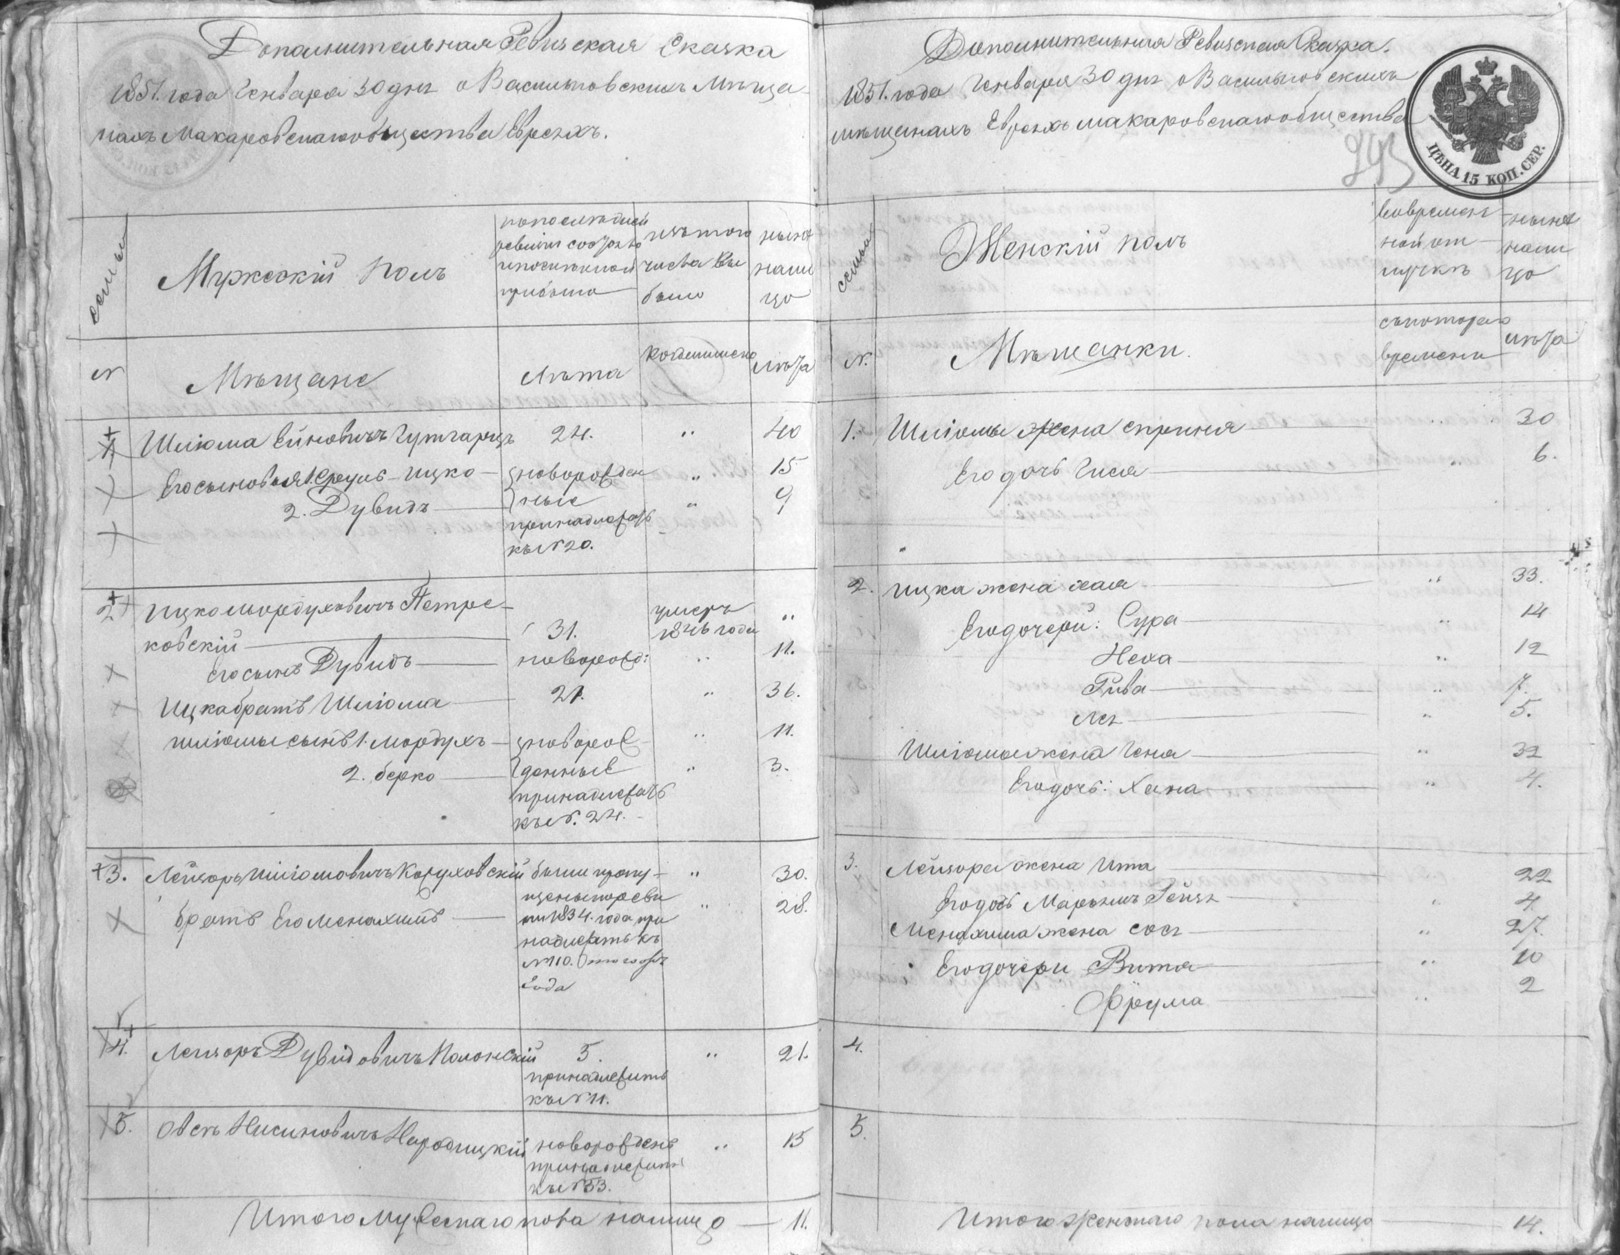 Дополнительная Ревизская Сказка
1851. года Генваря 30 дня о Васильковскихъ Мѣща-
нахъ Макаровскаго общества Евреяхъ.
семьи
Мужескій полъ
по последней
ревизіи состояло
и после оной
прибыло
изъ того
числа вы
было
ныне
нали
цо
№
Мѣщане
Лѣта
когда именно
лѣта
1
Шліома Ейновичъ Гутгарцъ 24. " 40
Его сыновья 1. Сруль-Ицко новорожден " 15
2. Дувидъ ные " 9
принадлежатъ
къ № 20.
2
Ицко Мордуховичъ Петре-
ковскій 31. умеръ 1846 года "
его сынъ Дувидъ новорожд: " 11.
Ицка братъ Шліома 21. " 36.
Шліомы сынъ 1. Мордухъ новорож " 11.
2. Берко денные " 3.
принадлежатъ
къ №. 24.
3. Лейзоръ Шліомовичъ Кожуховскій были пропу- " 30.
братъ Его Менахимъ щены по реви " 28.
зіи 1834. года при
надлежатъ къ
№ 10. того
года
4. Лейзоръ Дувидовичъ Полонскій 5. " 21.
принадлежитъ
къ № 11.
5. Овсѣй Нисиновичъ Народицкій новорожденъ " 15
принадлежитъ
къ № 53.
Итого Мужескаго пола налицо 11.
Дополнительная Ревизская Сказка.
1851. года Генваря 30 дня о Васильковскихъ
мѣщанахъ Евреяхъ Макаровскаго общества
ЦѢНА 15 КОП. СЕР.
993
семьи
Женскій полъ
во времен
ной от
лучкѣ
ныне
нали
цо
№.
Мѣщанки.
съ котораго
времени
лѣта
1. Шліомы жена Сприня " 30
Его дочь Гися " 6.
2. Ицка жена Хая " 33.
Его дочери: Сура " 14
Неха " 12
Рива " 7.
Лея " 5.
Шліомы жена Гена " 32
Его дочь: Хана " 4.
3. Лейзора жена Ита 22
Его дочь Марьямъ Рейзя " 4
Менахима жена Сося " 27.
Его дочери Витя " 10
Фрума " 2
4.
5.
Итого Женскаго пола налицо 14.